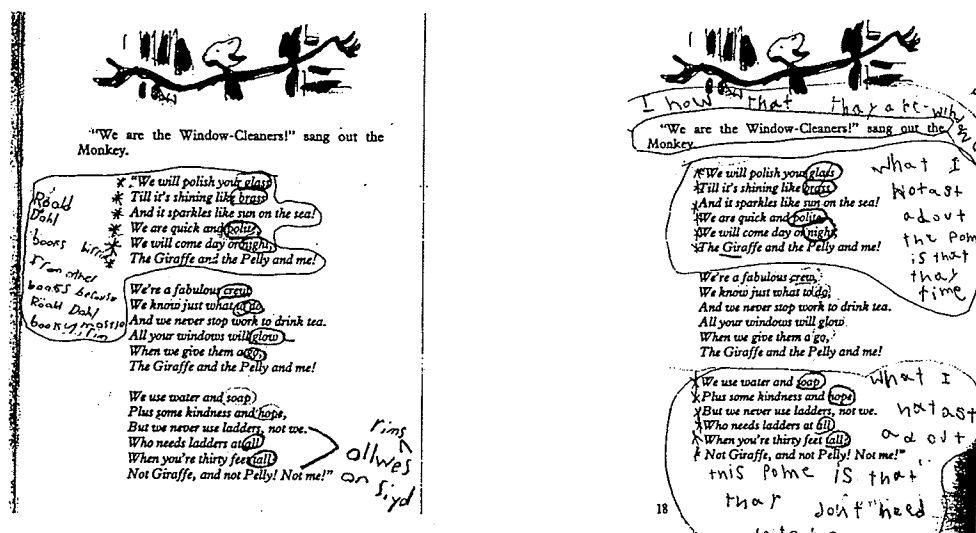 "We are the Window-Cleaners!" sang out the
Monkey.
"We will polish your glass
Till it's shining like brass
And it sparkles like sun on the sea!
We are quick and polite,
We will come day or night,
The Giraffe and the Pelly and me!
Roald
Dahl
books
from other
books because
Roald Dahl
We're a fabulous crew,
We know just what to do,
And we never stop work to drink tea.
All your windows will glow
When we give them a go,
The Giraffe and the Pelly and me!
We use water and soap
Plus some kindness and hope,
But we never use ladders, not we.
Who needs ladders at all
When you're thirty feet tall?
Not Giraffe, and not Pelly! Not me!"
rims
allwes
on
siyd
I now that thay are
"We are the Window-Cleaners!" sang out the
Monkey.
"We will polish your glass
Till it's shining like brass
And it sparkles like sun on the sea!
We are quick and polite,
We will come day or night,
The Giraffe and the Pelly and me!
What I
notast
adout
the pome
is that
thay
rime
We're a fabulous crew,
We know just what to do,
And we never stop work to drink tea.
All your windows will glow
When we give them a go,
The Giraffe and the Pelly and me!
We use water and soap
Plus some kindness and hope,
But we never use ladders, not we.
Who needs ladders at all
When you're thirty feet tall?
Not Giraffe, and not Pelly! Not me!"
What I
notast
adout
this pome is that
thay dont need
18